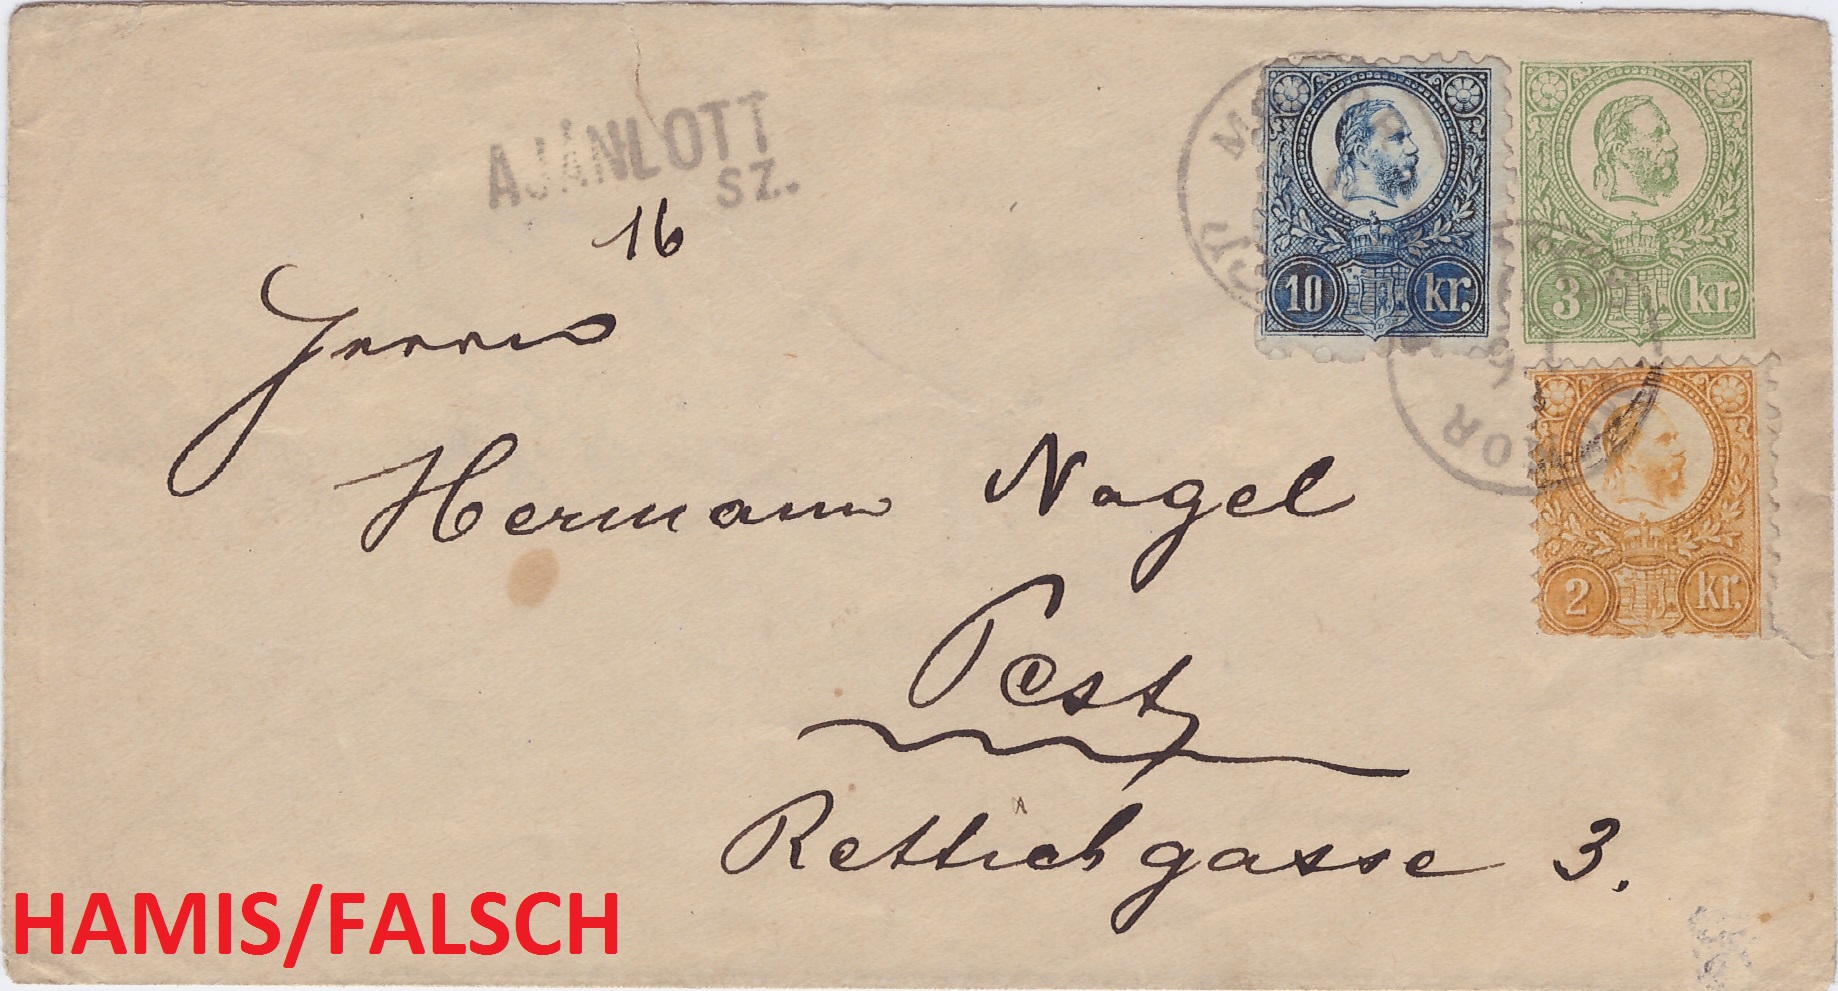 AJÁNLOTT
SZ.
16
10 kr.
3 kr.
2 kr.
Herrn
Hermann Nagel
Pest
Rettichgasse 3.
HAMIS/FALSCH